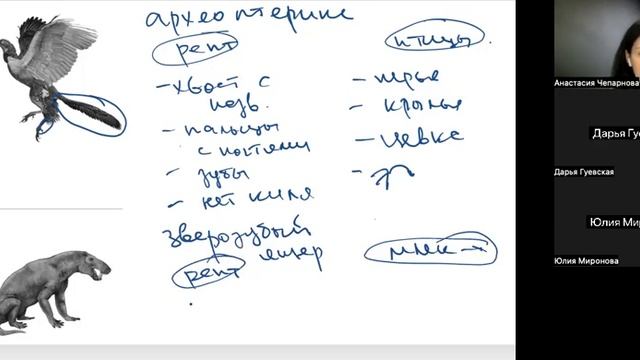 археоптерикс
репт
птицы.
- хвост с
позв.
- пальцы
с когтями
- зубы
- нет киля
- перья
- крылья
- цевка
зверозубый
ящер
репт
млек
Анастасия Чепарнова
Дарья Гуе
Дарья Гуевская
Юлия Миро
Юлия Миронова